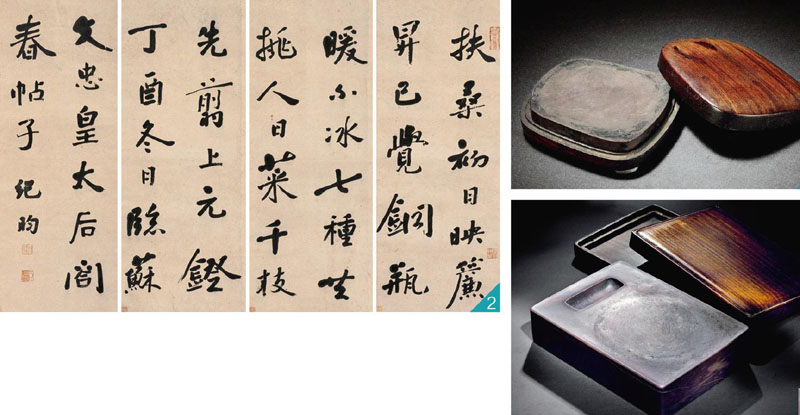 扶桑初日映簾
昇已覺銅瓶
暖不冰七種共
挑人日菜千枝
先剪上元鐙
丁酉冬日臨蘇
文忠皇太后閤
春帖子 紀昀
2